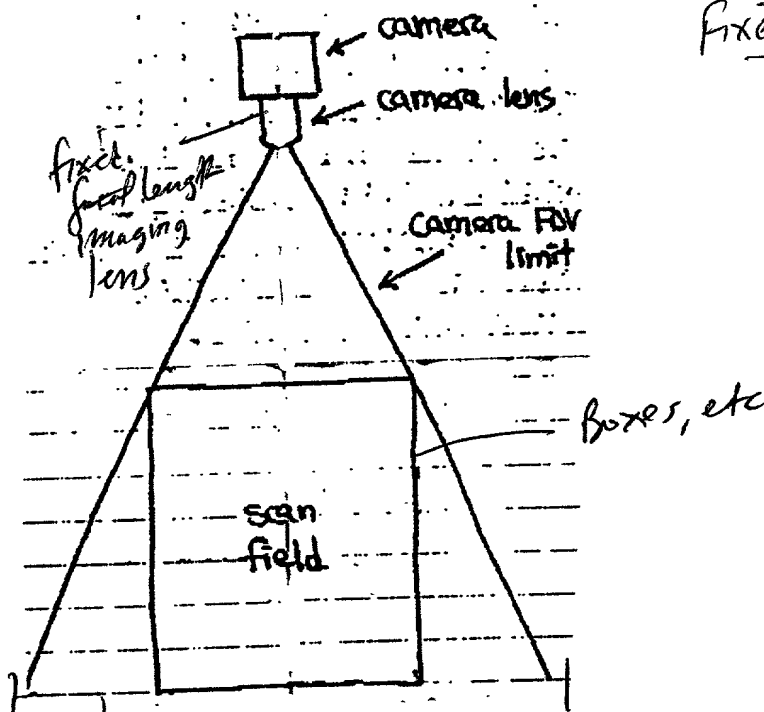 camera
camera lens
fixed
focal length
imaging
lens
camera FOV
limit
Boxes, etc
scan
field